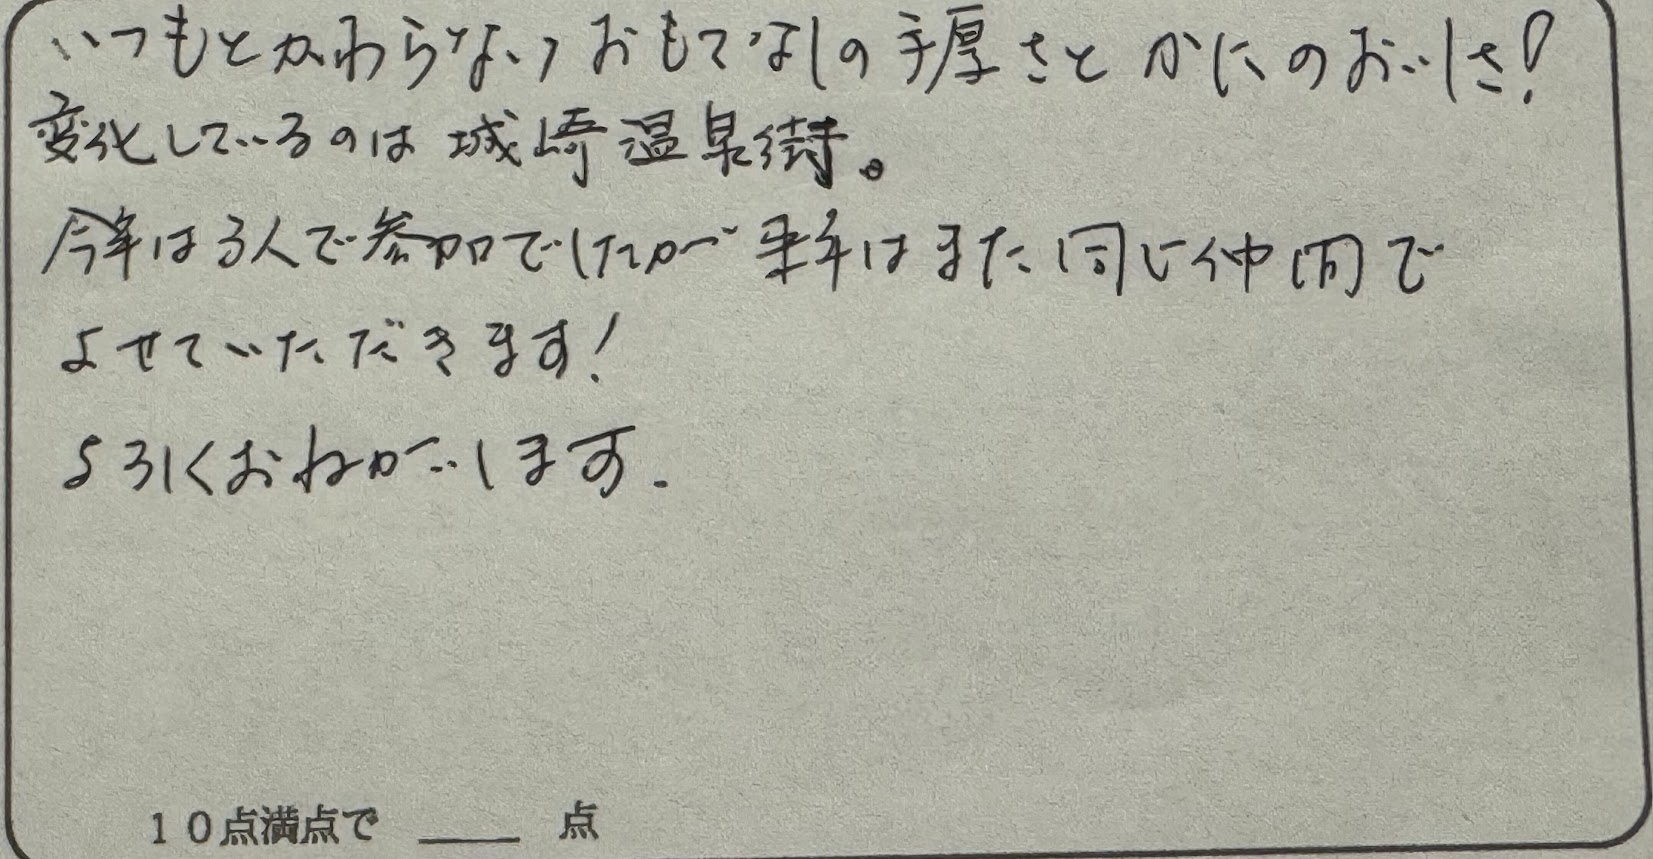 いつもとかわらないおもてなしの手厚さとかにのおいしさ!
変化しているのは城崎温泉街。
今年は3人で参加でしたが来年はまた同じ仲間で
よせていただきます!
よろしくおねがいします.
10点満点で ____ 点